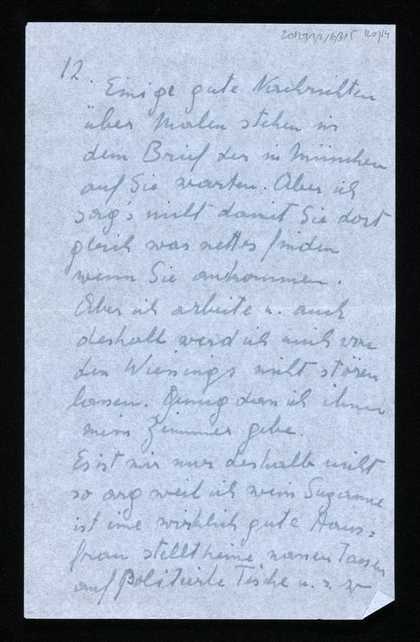 12.
Einige gute Nachrichten
über Malen stehen in
dem Brief der in München
auf Sie warten. Aber ich
sag's nicht damit Sie dort
gleich was nettes finden
wenn Sie ankommen.
Aber ich arbeite u. auch
deshalb werd ich mich von
den Wiesings nicht stören
lassen. Genug dass ich ihnen
mein Zimmer gebe.
Es ist mir nur deshalb nicht
so arg weil ich weiss Suzanne
ist eine wirklich gute Haus=
frau stellt keine nassen Tassen
auf Politierte Tische u. s. w